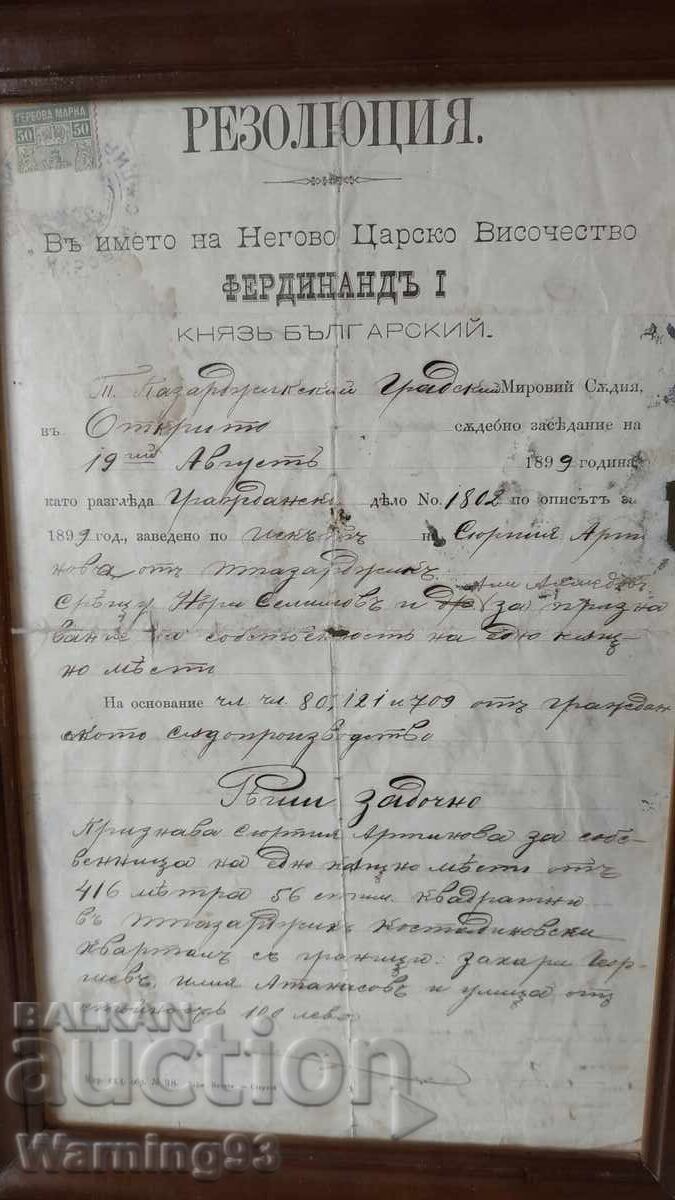 ГЕРБОВА МАРКА
50 50
РЕЗОЛЮЦИЯ.
Въ името на Негово Царско Височество
ФЕРДИНАНДЪ I
КНЯЗЬ БЪЛГАРСКИЙ.
Т. Пазарджикский Градский Мировий Сѫдия,
въ Открито сѫдебно засѣдание на
19 Августъ 1899 година
като разгледа Гражданско дѣло No. 1802 по описътъ за
1899 год., заведено по искътъ на Арти
нова отъ Тпазарджикъ
Срѣщу и за призна
вание на собственость на едно
но мѣсто
На основание чл. чл. 80, 121 и 709 отъ граждан
ското сѫдопроизводство
Рѣши задочно
Признава Артинова за соб-
венница на едно мѣсто отъ
416 мѣтра 56 квадратни
въ Тпазарджикъ
кварталъ съ граници: Захари Геор-
гиевъ, Илия Атанасовъ и улица отъ
стойность 100 лева
BALKAN
auction
Warning93